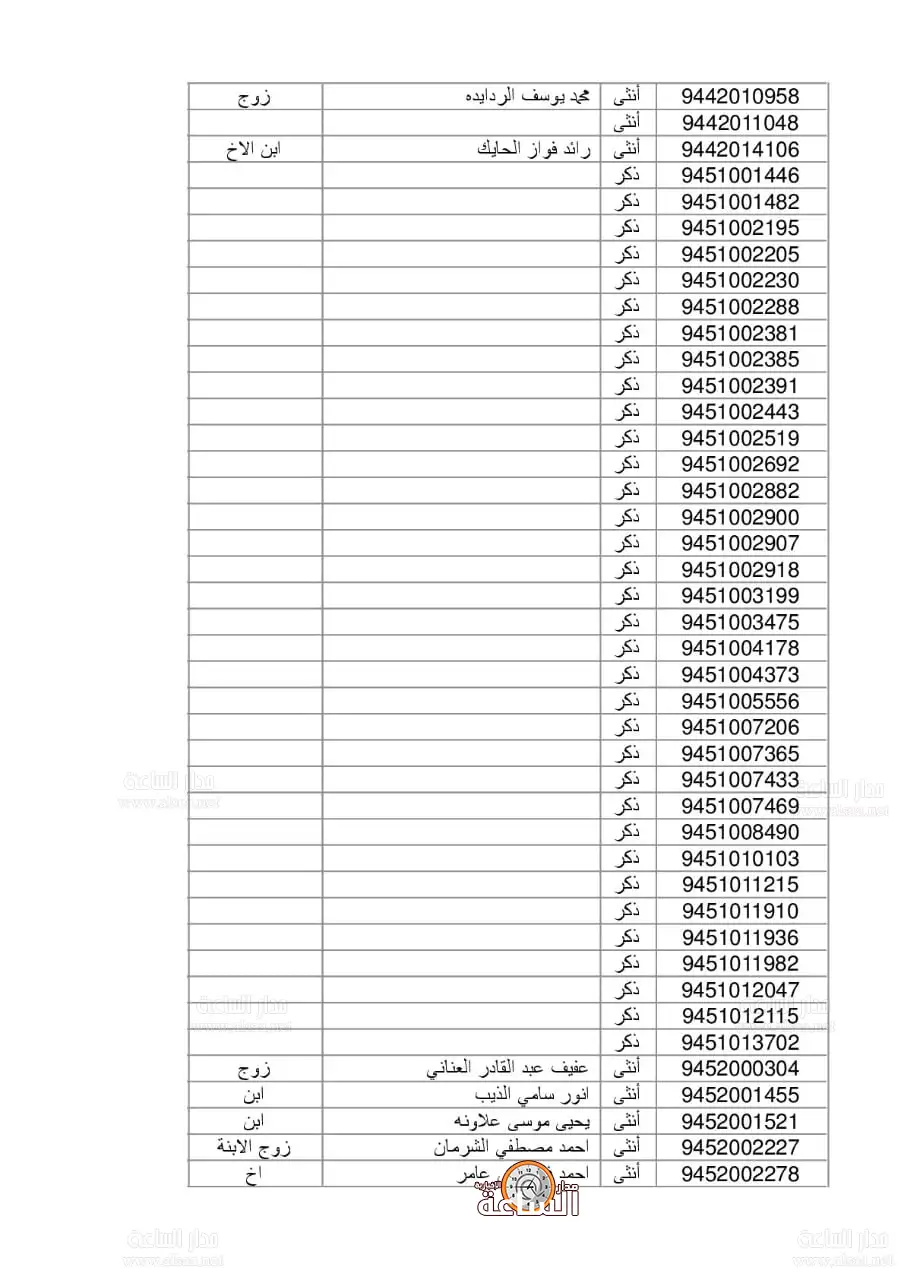 9442010958 أنثى محمد يوسف الردايده زوج
9442011048 أنثى
9442014106 أنثى رائد فواز الحايك ابن الاخ
9451001446 ذكر
9451001482 ذكر
9451002195 ذكر
9451002205 ذكر
9451002230 ذكر
9451002288 ذكر
9451002381 ذكر
9451002385 ذكر
9451002391 ذكر
9451002443 ذكر
9451002519 ذكر
9451002692 ذكر
9451002882 ذكر
9451002900 ذكر
9451002907 ذكر
9451002918 ذكر
9451003199 ذكر
9451003475 ذكر
9451004178 ذكر
9451004373 ذكر
9451005556 ذكر
9451007206 ذكر
9451007365 ذكر
9451007433 ذكر
9451007469 ذكر
9451008490 ذكر
9451010103 ذكر
9451011215 ذكر
9451011910 ذكر
9451011936 ذكر
9451011982 ذكر
9451012047 ذكر
9451012115 ذكر
9451013702 ذكر
9452000304 أنثى عفيف عبد القادر العناني زوج
9452001455 أنثى انور سامي الذيب ابن
9452001521 أنثى يحيى موسى علاونه ابن
9452002227 أنثى احمد مصطفي الشرمان زوج الابنة
9452002278 أنثى احمد عامر اخ
مدار الساعة الاخبارية
مدار الساعة
www.alsaa.net
مدار الساعة
www.alsaa.net
مدار الساعة
www.alsaa.net
مدار الساعة
www.alsaa.net
مدار الساعة
www.alsaa.net
مدار الساعة
www.alsaa.net